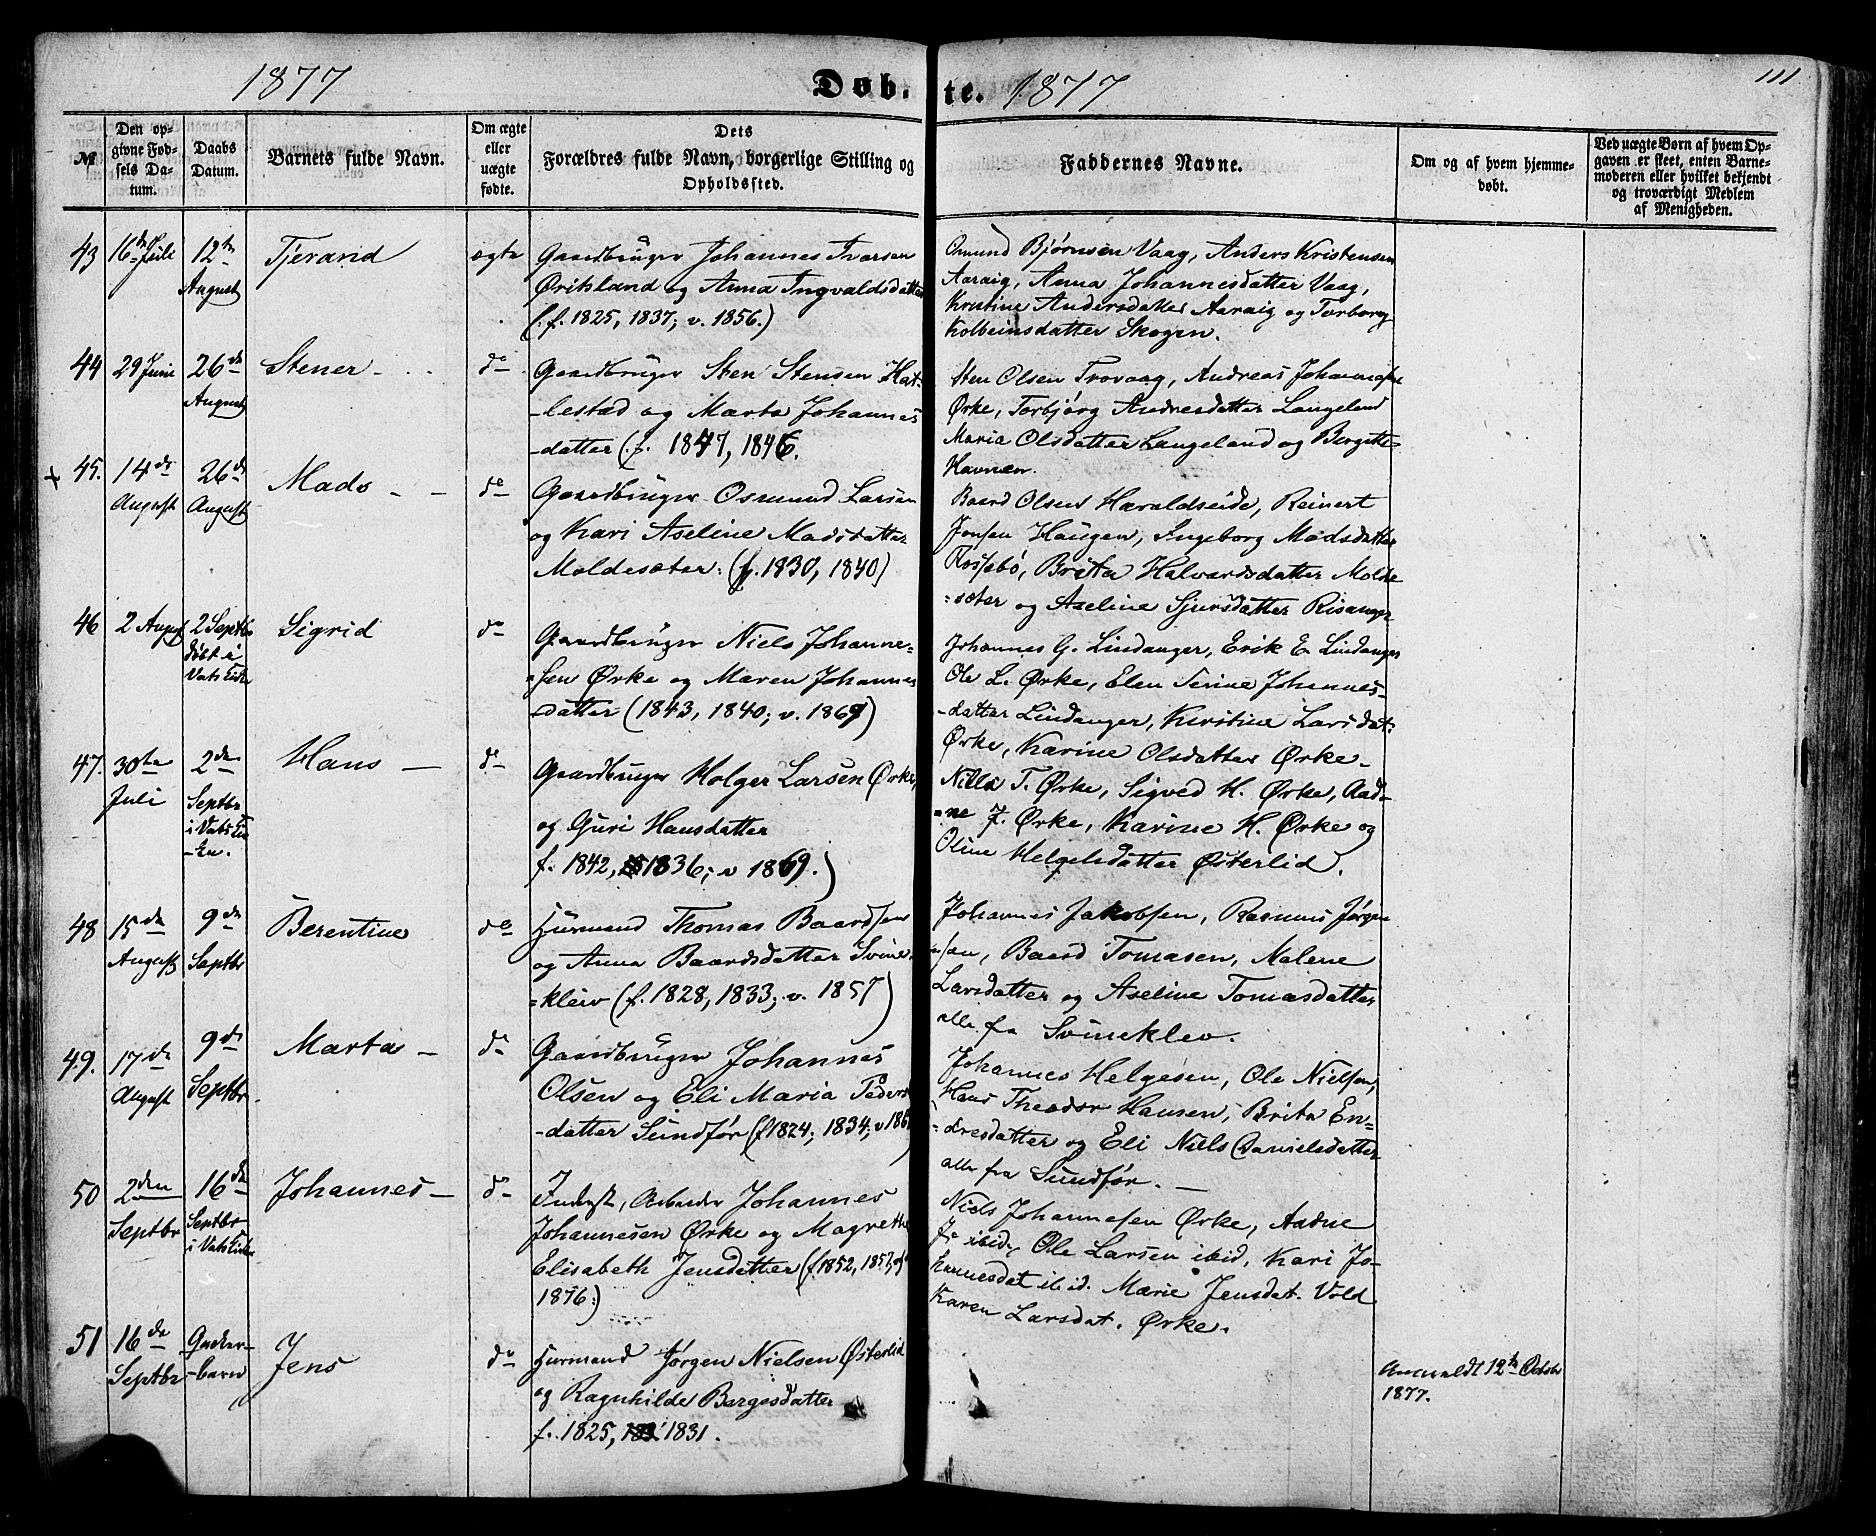 1877 Døb- te. 1877 111
№
Den op-
givne Fød-
sels Da-
tum.
Daabs
Datum.
Barnets fulde Navn.
Om ægte
eller
uægte
fødte.
Dets
Forældres fulde Navn, borgerlige Stilling og
Opholdssted.
Faddernes Navne.
Om og af hvem hjemme-
døbt.
Ved uægte Børn af hvem Op-
gaven er skeet, enten Barne-
moderen eller hvilket bekjendt
og troværdigt Medlem
af Menigheden.
43 16de Juli 12te August Tjerand ægte
Gaardbruger Johannes Ivarsen
Øriksland og Anna Ingvaldsdatter
(: f. 1825, 1837; v. 1856.)
Osmund Bjørnsen Vaag, Anders Kristensen
Aaraig, Anna Johannesdatter Vaag,
Kristine Andersdatter Aaraig og Torborg
Kolbeinsdatter Skogen.
44 29 Juni 26de August Stener - do
Gaardbruger Sten Stensen Hat-
-lestad og Marta Johannes
-datter (f. 1847, 1846.
Sten Olsen Trovaag, Andreas Johannesen
Ørke, Torbjørg Andresdatter Langeland
Maria Olsdatter Langeland og Bergitte
Havnen.
+ 45. 14de August 26de August Mads - - do
Gaardbruger Osmund Larsen
og Kari Aseline Madsdatter
Moldesæter: (f. 1830, 1840)
Baard Olsen Haraldseide, Reinert
Jonsen Haugen, Ingeborg Madsdatter
Rossebø, Brita Halvardsdatter Molde
=sæter og Aseline Sjursdatter Risanger
46 2 August 2 Septbr døbt i Vats Kirke Sigrid do
Gaardbruger Niels Johanne-
=sen Ørke og Maren Johannes
-datter (1843, 1840; v. 1869)
Johannes G. Lindanger, Erik E. Lindanger
Ole L. Ørke, Elen Serine Johannes-
-datter Lindanger, Kristine Larsdat:
Ørke, Karine Olsdatter Ørke-
47. 30te Juli 2den Septbr i Vats Kir-
-ken. Hans - do
Gaardbruger Holger Larsen Ørke,
og Guri Hansdatter
f. 1842, 1836; v 1869.)
Niels T. Ørke, Sigved H. Ørke, Aad-
=ne J. Ørke, Karine H. Ørke og
Oline Helgesdatter Østerlid.
48 15de August 9de Septbr Berentine do
Husmand Thomas Baardsen
og Anna Baardsdatter Svine-
=kleiv (f. 1828, 1833; v. 1857)
Johannes Jakobsen, Rasmus Jørgen
=sen, Baard Tomasen, Malene
Larsdatter og Aseline Tomasdatter
alle fra Svineklev.
49. 17de August 9de Septbr Marta - do
Gaardbruger Johannes
Olsen og Eli Maria Peders
-datter Sundfør (f 1824; 1834; v 186
Johannes Helgesen, Ole Nielsen,
Hans Theodor Hansen, Brita En-
=dresdatter og Eli Niels Danielsdatter
alle fra Sundfør. -
50 2den Septbr 16de Septbr i Vats Kirke Johannes - do
Inderst, Arbeider Johannes
Johannesen Ørke og Magrethe
Elisabeth Jensdatter (f 1852, 1857, g
1876:)
Niels Johannesen Ørke, Aadne
J. ibid, Ole Larsen ibid, Kari Jo-
hannesdat ibid. Marie Jensdat. Vold
Karen Larsdat. Ørke.
51 16de Septbr Jens do
-barn
Husmand Jørgen Nielsen Østerlid
og Ragnhilde Børgesdatter
f. 1825, 1831.
Anmeldt 12te Octobr
1877.